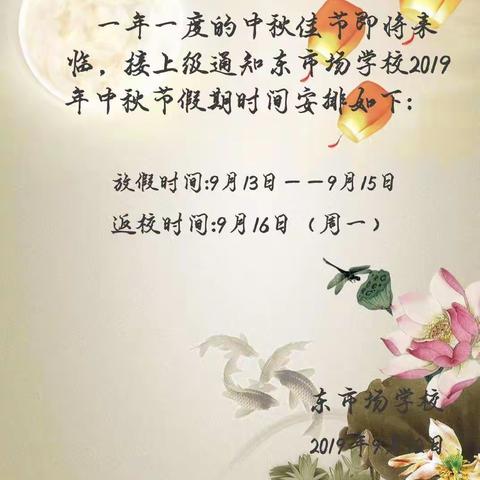 一年一度的中秋佳节即将来
临，接上级通知东市场学校2019
年中秋节假期时间安排如下:
放假时间:9月13日－－9月15日
返校时间:9月16日（周一）
东市场学校
2019年9月 日